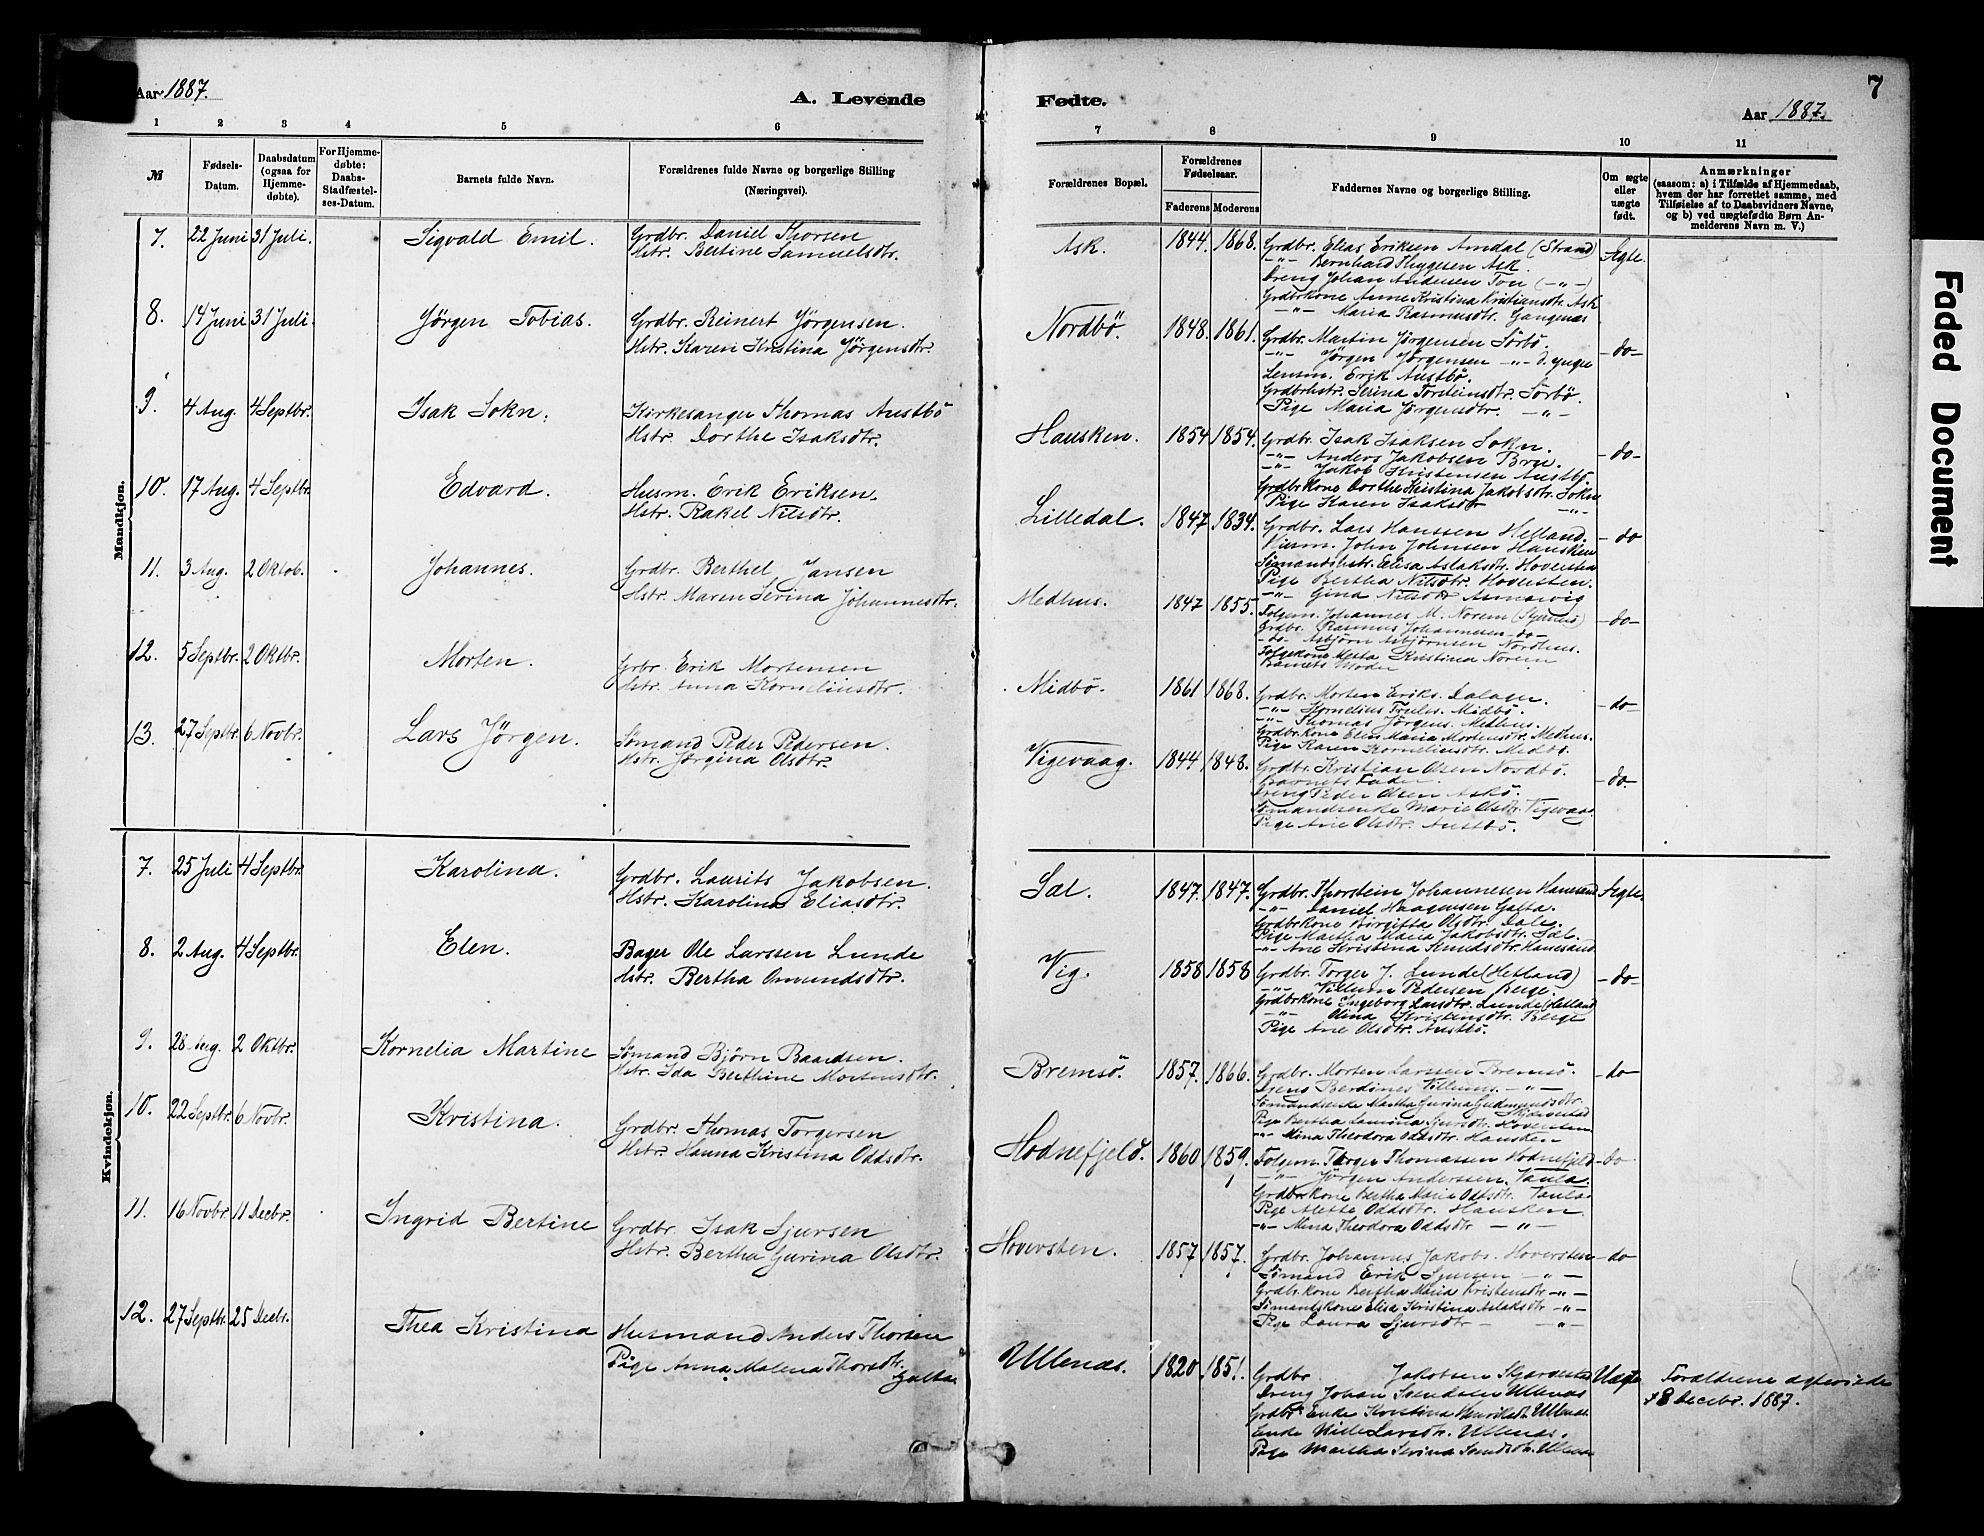 Aar 1887.
A. Levende
Fødte.
Aar 1887.
7
1 2 3 4 5 6 7 8 9 10 11
№
Fødsels-Datum.
Daabsdatum (ogsaa for Hjemme-døbte).
For Hjemme-døbte: Daabs-Stadfæstel-ses-Datum.
Barnets fulde Navn.
Forældrenes fulde Navne og borgerlige Stilling (Næringsvei).
Forældrenes Bopæl.
Forældrenes Fødselsaar.
Faderens Moderens
Faddernes Navne og borgerlige Stilling.
Om ægte eller uægte født.
Anmærkninger (saasom: a) i Tilfælde af Hjemmedaab, hvem der har forrettet samme, med Tilføielse af to Daabsvidners Navne, og b) ved uægtefødte Børn Anmelderens Navn m. V.)
Faded Document
Mandkjøn.
7. 22 Juni 31 Juli. Sigvald Emil. Grdbr. Daniel Thorsen
Hstr. Bertine Samuelsdtr.
Ask. 1844. 1868. Grdbr. Elias Eriksen Amdal (Strand) Ægte.
-"- Bernhard Thygesen Ask.
Dreng Johan Andersen Tou (-"-)
Grdbrkone Anne Kristina Kristiansdtr. Ask
-"- Maria Rasmusdtr. Gangenæs
8. 14 Juni 31 Juli. Jörgen Tobias. Grdbr. Reinert Jörgensen.
Hstr. Karen Kristina Jörgensdtr.
Nordbö. 1848. 1861. Grdbr. Martin Jörgensen Sörbö. -do-
-"- Jörgen Jörgensen -"- d. yngre
Lensm. Erik Austbö.
Grdbrhstr. Serina Torsteinsdtr. Sörbö.
Pige Maria Jörgensdtr. -"-
9. 4 Aug. 4 Septbr. Isak Sokn. Kirkesanger Thomas Austbö
Hstr. Dorthe Isaksdtr.
Hausken. 1854 1854. Grdbr. Isak Isaksen Sokn. -do-
-"- Anders Jakobsen Bru.
-"- Jakob Kristensen Austbö
Grdbrkone Dorthe Kristina Jakobsdtr. Sokn
Pige Karen Isaksdtr -"-
10. 17 Aug. 4 Septbr. Edvard. Husm. Erik Eriksen.
Hstr. Rakel Nilsdtr.
Lilledal. 1847 1834. Grdbr. Lars Hanssen Helland. -do
Husm. John Johnsen Hausken
Sømandshstr. Elisa Aslaksdtr. Hoversten
Pige Bertha Nilsdtr. Hoversten.
-"- Gina Nilsdtr Asmarvig
11. 3 Aug. 2 Oktob. Johannes. Grdbr. Berthel Jansen
Hstr. Maren Serina Johannesdtr.
Medhus. 1847 1855. Folgem. Johannes M. Norem (Tysvær) -do-
Grdbr. Rasmus Johannesen -do-
-do- Asbjørn Asbjørnsen Nordhus.
Folgekone Metta Kristina Norem
Barnets Moder
12. 5 Septbr. 2 Oktbr. Morten. Grbr. Erik Mortensen
Hstr. Anna Korneliusdtr.
Midbö. 1861 1868. Grdbr. Morten Eriks. Dalager. -do-
-"- Kornelius Truls. Midbö.
-"- Thomas Jörgens. Medhus.
Grdbrkone Elen Maria Mortensdtr. Medhus.
Pige Karen Korneliusdtr. Medbö.
13. 27 Septbr. 6 Novbr. Lars Jörgen. Sømand Peder Pedersen.
Hstr. Jörgina Olsdtr.
Vigevaag. 1844 1848. Grdbr. Kristian Olsen Nordbö. -do-
Barnets Fader.
Dreng Peder Olsen Askö.
Sømandsenke Marie Olsdtr. Vigevaag
Pige Ane Olsdtr. Austbö.
Kvindekjøn.
7. 25 Juli 4 Septbr. Karolina. Grdbr. Laurits Jakobsen.
Hstr. Karolina Eliasdtr.
Sæl. 1847. 1847. Grdbr. Thorstein Johannesen Hanesand Ægte.
-"- Daniel Haagensen Galta.
Grdbrkone Birgitta Olsdtr. Dale.
Pige Martha Maria Jakobsdtr. Sæl.
-"- Ane Kristina Knudsdtr. Hanesand
8. 2 Aug. 4 Septbr. Elen. Bager Ole Larssen Lunde
Hstr. Bertha Omundsdtr.
Vig. 1858 1858 Grdbr. Torger J. Lunde (Hetland) -do-
-"- Villum Pedersen Berge.
Grdbrkone Ingeborg Larsdtr. Lunde (Hetland)
-"- Olina Kristensdtr. Berge
Pige Ane Olsdtr. Austbö.
9. 28 Aug. 2 Oktbr. Kornelia Martine Sømand Björn Baardsen.
Hstr. Ida Berthine Mortensdtr.
Bremsö. 1857. 1866. Grdbr. Morten Larssen Bremsö. -do
Berdines Villums. -"-
Sømandsenke Martha Gurina Gudmundsdtr
Pige Bertha Sjursdtr. Hoversten
-"- Mina Theodora Oddsdtr. Hausken
10. 22 Septbr. 6 Novbr. Kristina. Grdbr. Thomas Torgersen
Hstr. Hanna Kristina Oddsdtr.
Hodnefjeld. 1860 1859. Folgem. Torger Thomassen Hodnefjeld -do
-"- Jörgen Anderssen. Vaula.
Grdbrkone Bertha Marie Oddsdtr. Vaula.
Pige Alette Oddsdtr. Hausken.
-"- Mina Theodora Oddsdtr -"-
11. 16 Novbr. 11 Decbr. Ingrid Bertine Grdbr. Isak Sjursen
Hstr. Bertha Gurina Olsdtr.
Hoversten. 1857 1857. Grdbr. Johannes Jakobs. Hoversten -do
Sømand Erik Sjursen -"-
Grdbrkone Bertha Maria Kristensdtr -"-
Sømandskone Elisa Kristina Aslaksdtr -"-
Pige Laura Sjursdtr -"-
12. 27 Septbr. 25 Decbr. Thea Kristina Husmand Anders Thorsen
Pige Anna Malena Thorsdtr. Galta
Ullenæs. 1820 1851. Grdbr. Jakobsen Skjørvestad Uægte Forældrene
Dreng Johan Svendsen Ullenæs 8 Decbr. 1887.
Grdbr. Enke Kristina Henriksdtr. Ullenæs.
Enke Larsdtr. Ullenæs.
Pige Martha Serina Ullenæs